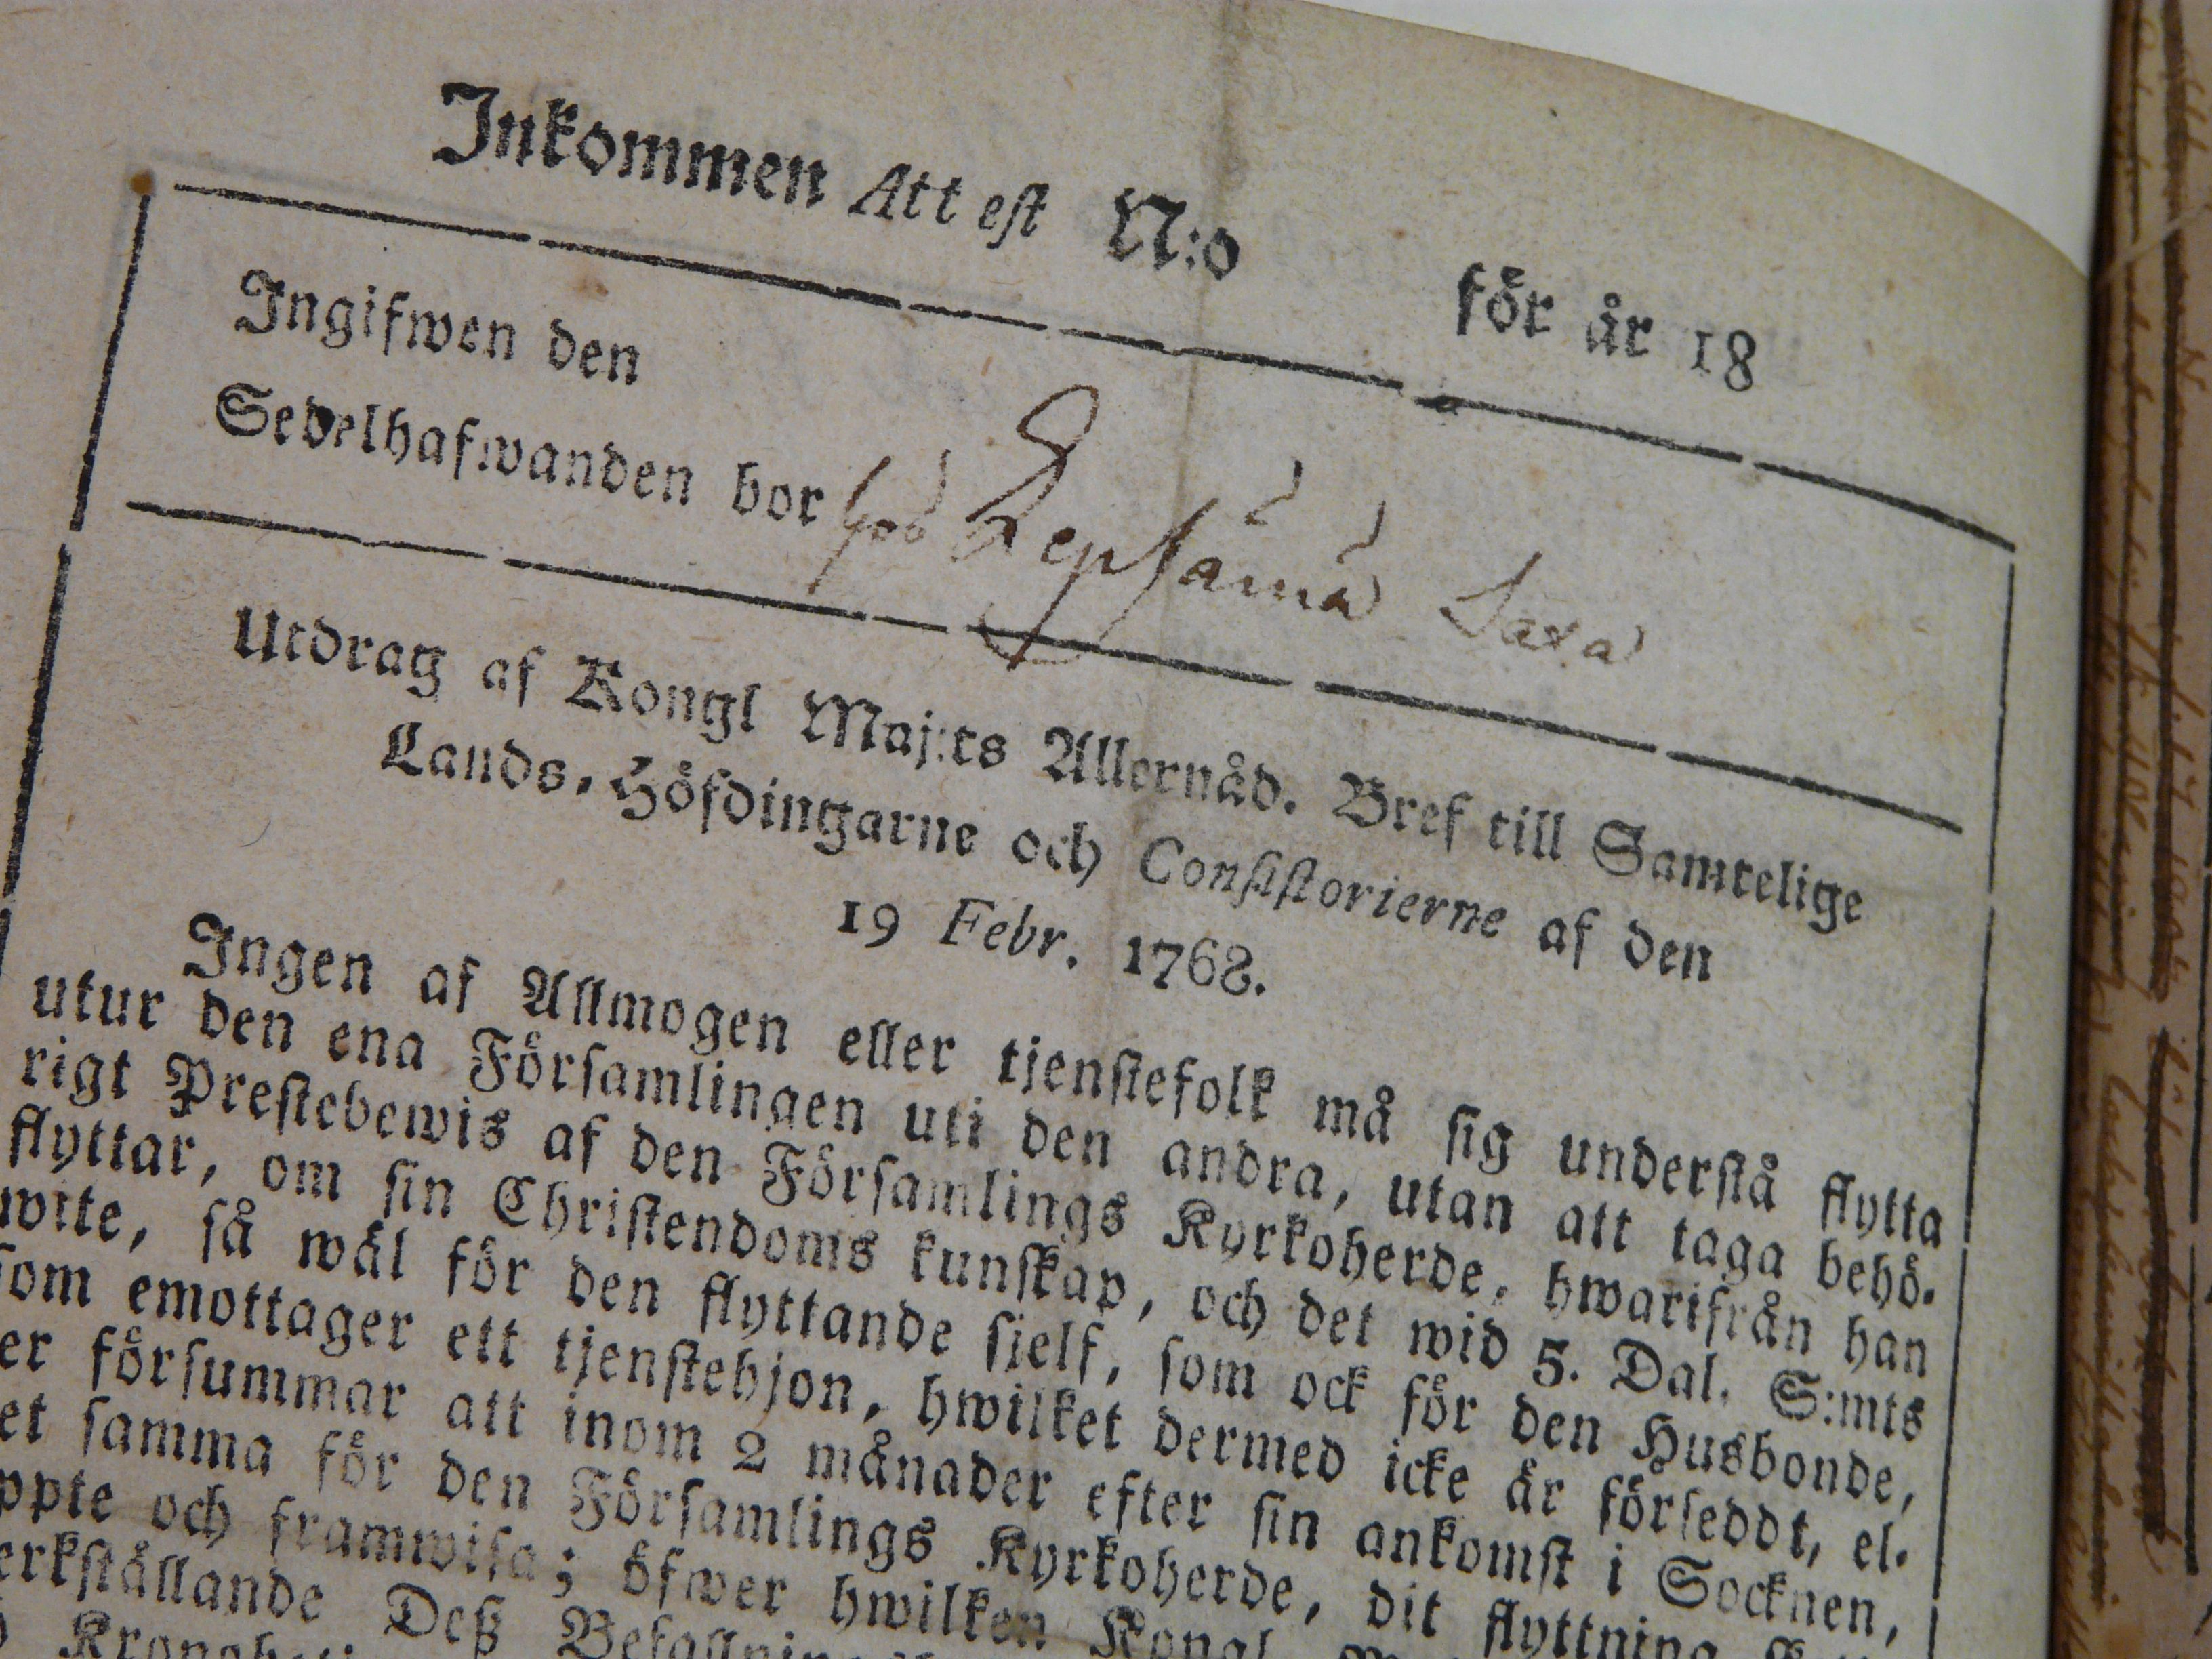 Inkommen Att est N:o för år 18
Ingifwen den
Sedelhafwanden bor hos Saxa
Utdrag af Kongl Maj:ts Allernåd. Bref till Samtelige
Lands-Höfdingarne och Consistorierne af den
19 Febr. 1768.
Ingen af Allmogen eller tjenstefolk må sig understå flytta
utur den ena Församlingen uti den andra, utan att taga behö-
rigt Prestebewis af den Församlings Kyrkoherde, hwarifrån han
flyttar, om sin Christendoms kunskap, och det wid 5. Dal. S:mts
wite, så wäl för den flyttande sjelf, som ock för den Husbonde,
som emottager ett tjenstehjon, hwilket dermed icke är försedt, el-
er försummar att inom 2 månader efter sin ankomst i Socknen,
et samma för den Församlings Kyrkoherde, dit flyttning
ppte och framwisa; öfwer hwilken Kongl.
erkställande Deß